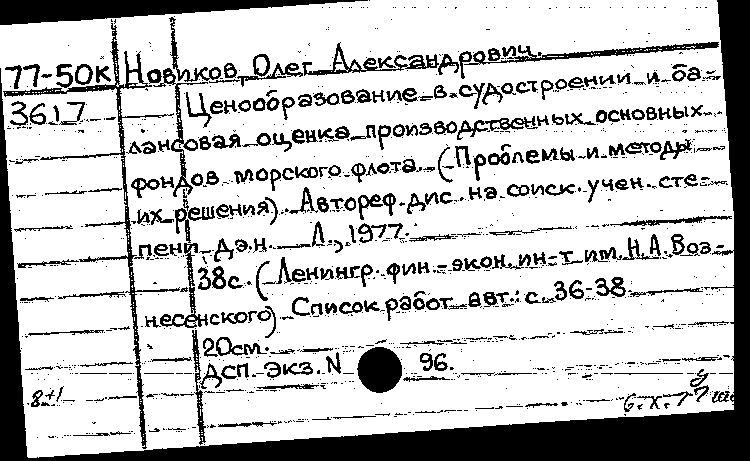 77-50к Новиков, Олег Александрович.
3617 Ценообразование в судостроении и ба-
лансовая оценка производственных основных
фондов морского флота (Проблемы и методы
их решения). Автореф. дис. на соиск. учен. сте-
пени д.э.н. Л., 1977.
38с. (Ленингр. фин.-экон. ин-т им. Н.А. Воз-
несенского) Список работ авт.: с. 36-38
20см.
ДСП. Экз. N 96.
8+1